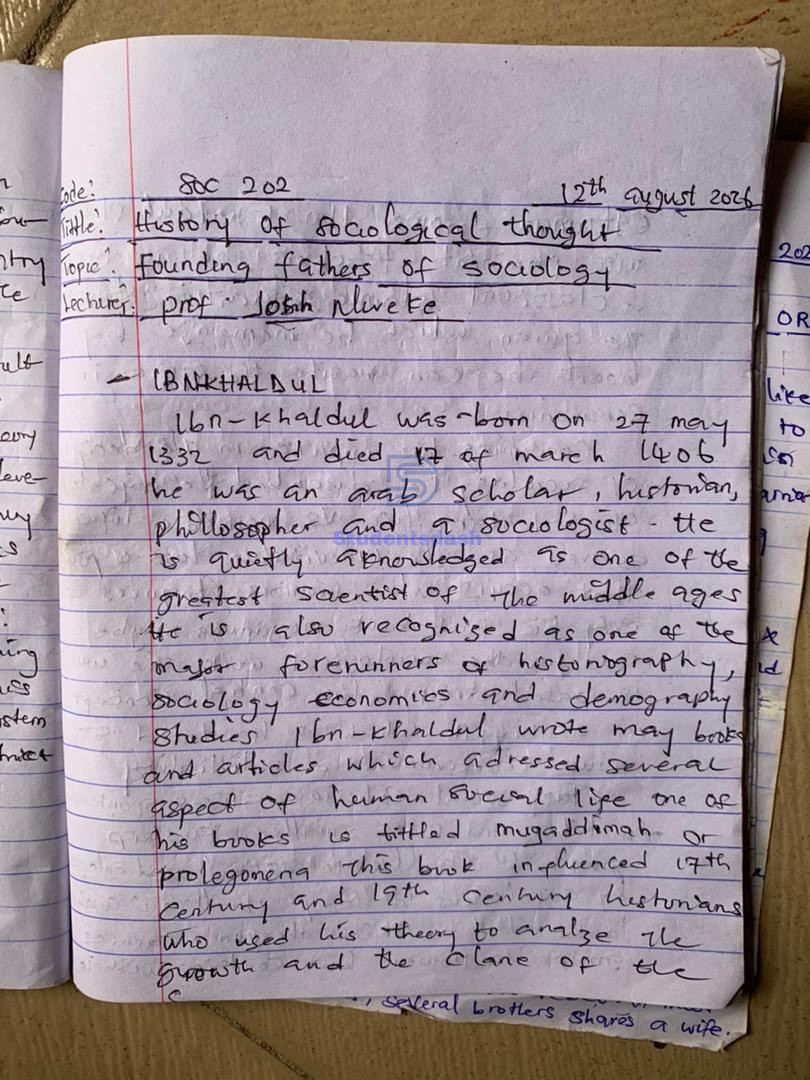 Code: SOC 202 12th august 2026
Tittle: History of sociological thought
Topic: founding fathers of sociology
Lecturer: prof. Nweke
- IBNKHALDUL
Ibn-khaldul was born on 27 may
1332 and died 17 of march 1406
he was an arab scholar, historian,
phillosopher and a sociologist. He
is quietly aknowledged as one of the
greatest scientist of the middle ages
He is also recognised as one of the
major forerunners of historiography,
sociology economics and demography
studies Ibn-khaldul wrote may books
and articles which adressed several
aspect of human social life one of
his books is tittled mugaddimah or
prolegomena this book influenced 17th
century and 19th century historians
who used his theory to analze the
growth and the clane of the
Studentsdash
, several brothers shares a wife.
202
OR
like
to